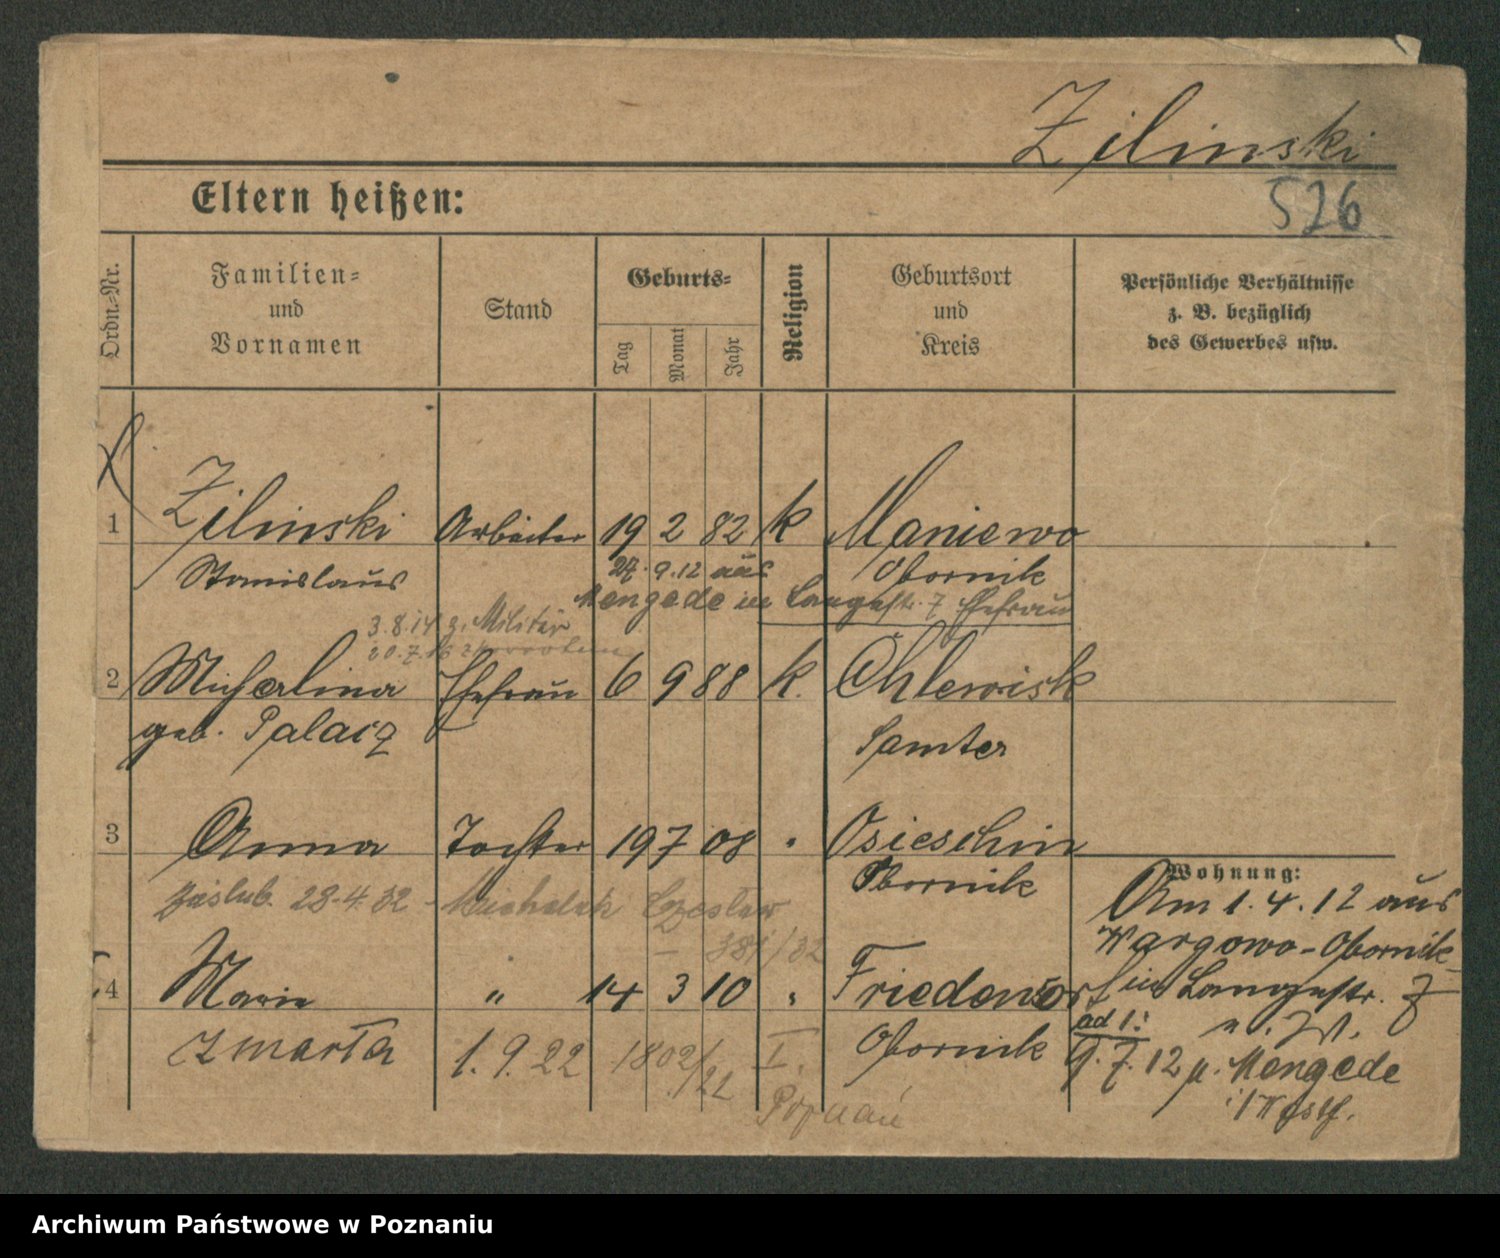 Zilinski
526
Eltern heißen:
Ordn.-Nr.
Familien-
und
Vornamen
Stand
Geburts-
Tag
Monat
Jahr
Religion
Geburtsort
und
Kreis
Persönliche Verhältnisse
z. B. bezüglich
des Gewerbes usw.
1 Zilinski Arbeiter 19 2 82 k Maniewo
Stanislaus Obornik
27.9.12 aus
Mengede in Langestr. 7 Ehefrau
3.8.14 z. Militär
20.7.16
2 Micharlina Ehefrau 6 9 88 k. Chlewisk
geb. Palacz Samter
3 Anna Tochter 19 7 08 " Osieschin
Obornik
zaślub. 28.4.32 - Michalak Czesław
— 381/32
4 Marie " 14 3 10 " Friedendorf
zmarła 1.9.22 1802/22 I. Obornik
Poznań
Wohnung:
Am 1.4.12 aus
Wargowo-Obornik
in Langestr. 7
ad 1:
9.7.12 n. Mengede
i/Westf.